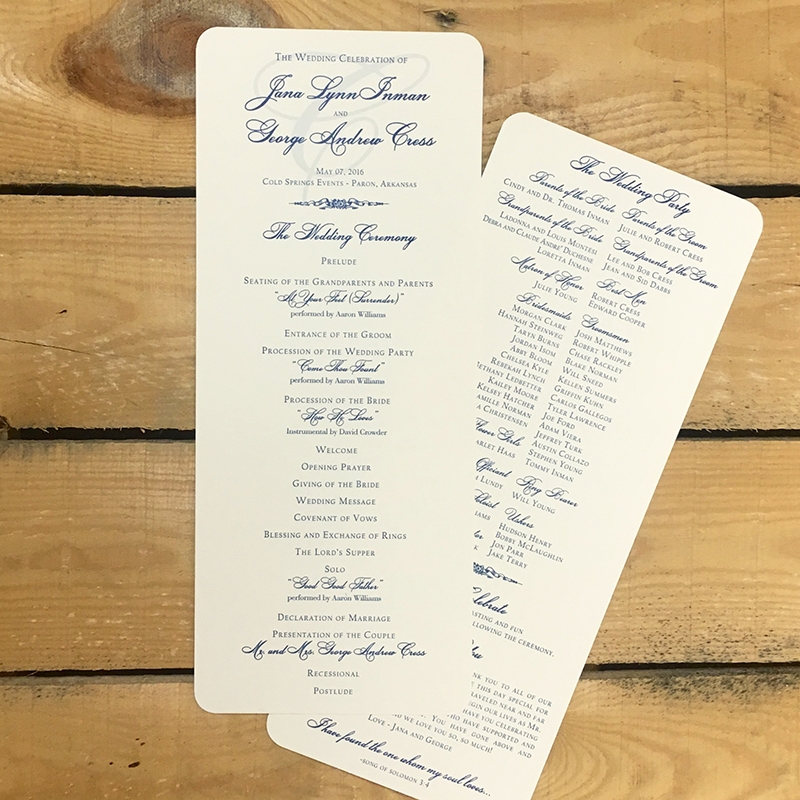 The Wedding Celebration of
Jana Lynn Inman
and
George Andrew Cress
May 07, 2016
Cold Springs Events - Paron, Arkansas
The Wedding Ceremony
Prelude
Seating of the Grandparents and Parents
"At Your Feet (Surrender)"
performed by Aaron Williams
Entrance of the Groom
Procession of the Wedding Party
"Come Thou Fount"
performed by Aaron Williams
Procession of the Bride
"How He Loves"
Instrumental by David Crowder
Welcome
Opening Prayer
Giving of the Bride
Wedding Message
Covenant of Vows
Blessing and Exchange of Rings
The Lord's Supper
Solo
"Good Good Father"
performed by Aaron Williams
Declaration of Marriage
Presentation of the Couple
Mr. and Mrs. George Andrew Cress
Recessional
Postlude
The Wedding Party
Parents of the Bride
Cindy and Dr. Thomas Inman
Grandparents of the Bride
Ladonna and Louis Montesi
Debra and Claude Andre' Duchesne
Loretta Inman
Matron of Honor
Julie Young
Bridesmaids
Morgan Clark
Hannah Steinweg
Taryn Burns
Jordan Isom
Abby Bloom
Chelsea Kyle
Rebekah Lynch
Bethany Ledbetter
Kailey Moore
Kelsey Hatcher
amille Norman
a Christensen
Flower Girls
arlet Haas
Officiant
Lundy
loist
iams
Parents of the Groom
Julie and Robert Cress
Grandparents of the Groom
Lee and Bob Cress
Jean and Sid Dabbs
Best Men
Robert Cress
Edward Cooper
Groomsmen
Josh Matthews
Robert Whipple
Chase Rackley
Blake Norman
Will Sneed
Kellen Summers
Griffin Kuhn
Carlos Gallegos
Tyler Lawrence
Joe Ford
Adam Viera
Jeffrey Turk
Austin Collazo
Stephen Young
Tommy Inman
Ring Bearer
Will Young
Ushers
Hudson Henry
Bobby McLaughlin
Jon Parr
Jake Terry
elebrate
asting and fun
ollowing the ceremony.
you
nk you to all of our
this day special for
traveled near and far
egin our lives as Mr.
who have supported and
You have gone above and
nd we love you so, so much!
Love - Jana and George
I have found the one whom my soul loves...
-Song of Solomon 3:4